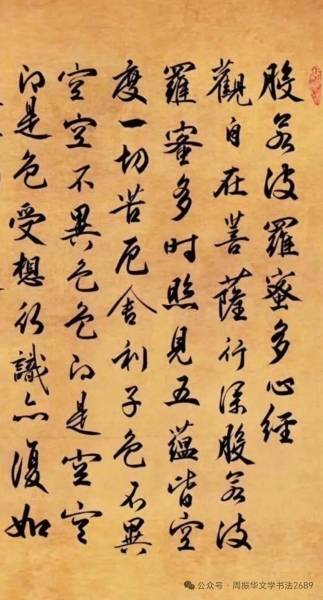 般若波羅蜜多心經
觀自在菩薩行深般若波
羅蜜多時照見五蘊皆空
度一切苦厄舍利子色不異
空空不異色色即是空空
即是色受想行識亦復如
公众号·周振华文学书法2689